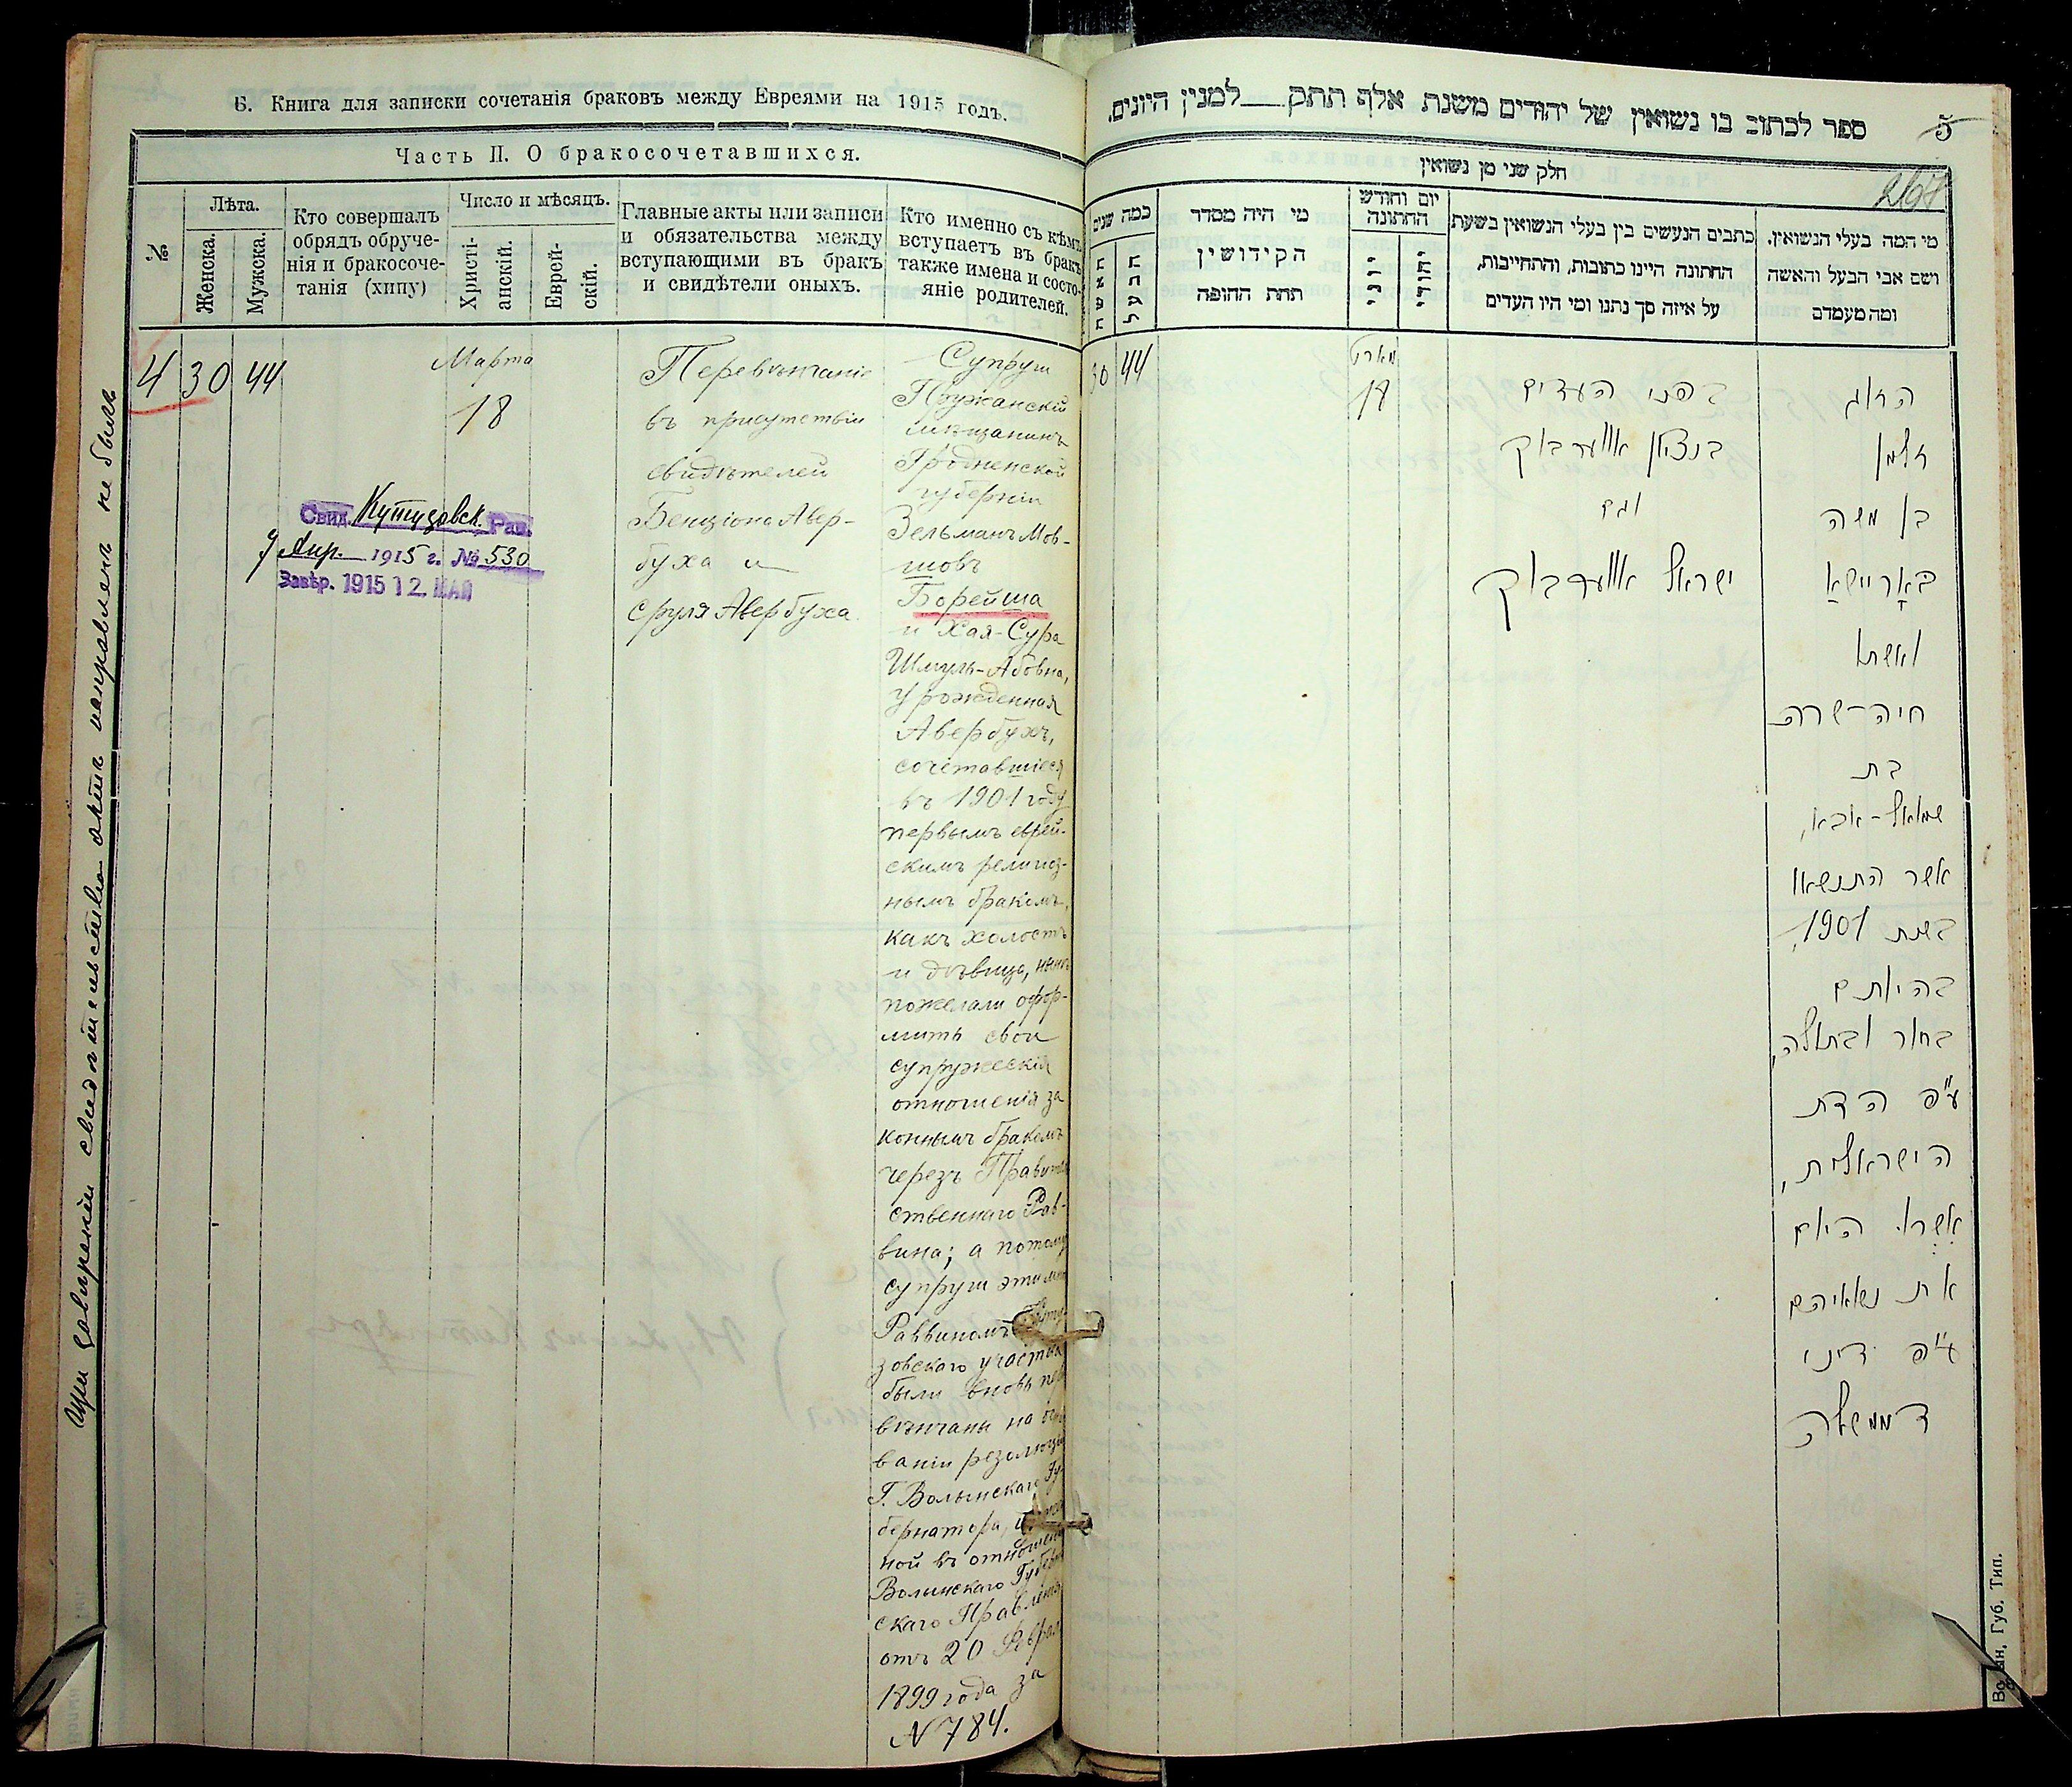 Б. Книга для записки сочетанія браковъ между Евреями на 1915 годъ.
Часть II. О бракосочетавшихся.
№
Лѣта.
Женска.
Мужска.
Кто совершалъ
обрядъ обруче-
нія и бракосоче-
танія (хипу)
Число и мѣсяцъ.
Христі-
анскій.
Еврей-
скій.
Главные акты или записи
и обязательства между
вступающими въ бракъ
и свидѣтели оныхъ.
Кто именно съ кѣмъ
вступаетъ въ бракъ
также имена и состо-
яніе родителей.
4
30
44
Марта
18
Свид. Кутузовск. Рав.
9 Апр. 1915 г. № 530
Завѣр. 1915 12. МАЙ
Перевѣнчаніе
въ присутствіи
свидѣтелей
Бенціона Авер-
буха и
Сруля Авербуха.
Супруги
Пружанскій
мѣщанинъ
Гродненской
губерніи
Зельманъ Мов-
шовъ
Борейша
и Хая-Сура
Шмуль-Абовна,
урожденная
Авербухъ,
сочетавшіеся
въ 1901 году
первымъ еврей-
скимъ религіоз-
нымъ бракомъ,
какъ холостъ
и дѣвица, нынѣ
пожелали офор-
мить свои
супружескія
отношенія за
коннымъ бракомъ
черезъ Правитель
ственнаго Рав-
вина; а потому
супруги этимъ
Раввиномъ Куту-
зовскаго участка
были вновь пере
вѣнчаны на осно
ваніи резолюціи
Г. Волынскаго Гу-
бернатора,
ной въ отношеніи
Волынскаго Губерн
скаго Правленія
отъ 20 Февраля
1899 года за
N 784.
При завѣреніи свидѣтельство актъ неправленъ не былъ
ספר לכתוב בו נשואין של יהודים משנת אלף תתק למנין היונים.
5
חלק שני מן נשואין
כמה שנים
האשה
הבעל
מי היה מסדר
הקידושין
תחת החופה
יום וחודש
החתונה
יוני
יהודי
כתבים הנעשים בין בעלי הנשואין בשעת
החתונה היינו כתובות, והתחייבות,
על איזה סך נתנו ומי היו העדים
מי המה בעלי הנשואין,
ושם אבי הבעל והאשה
ומה מעמדם
30
44
מארט
18
בפני העדים
בנציון אווערבוך
ועד
ישראל אווערבוך
הזוג
זלמן
בן משה
באָריישאַ
ואשתו
חיה-שרה
בת
שמואל-אבא,
אשר התנשאו
בשנת 1901,
בהיותם
בחור ובתולה,
ע"פ הדת
הישראלית,
אשרו היום
את נשואיהם
ע"פ דיני
הממשלה
Волын, Губ. Тип.